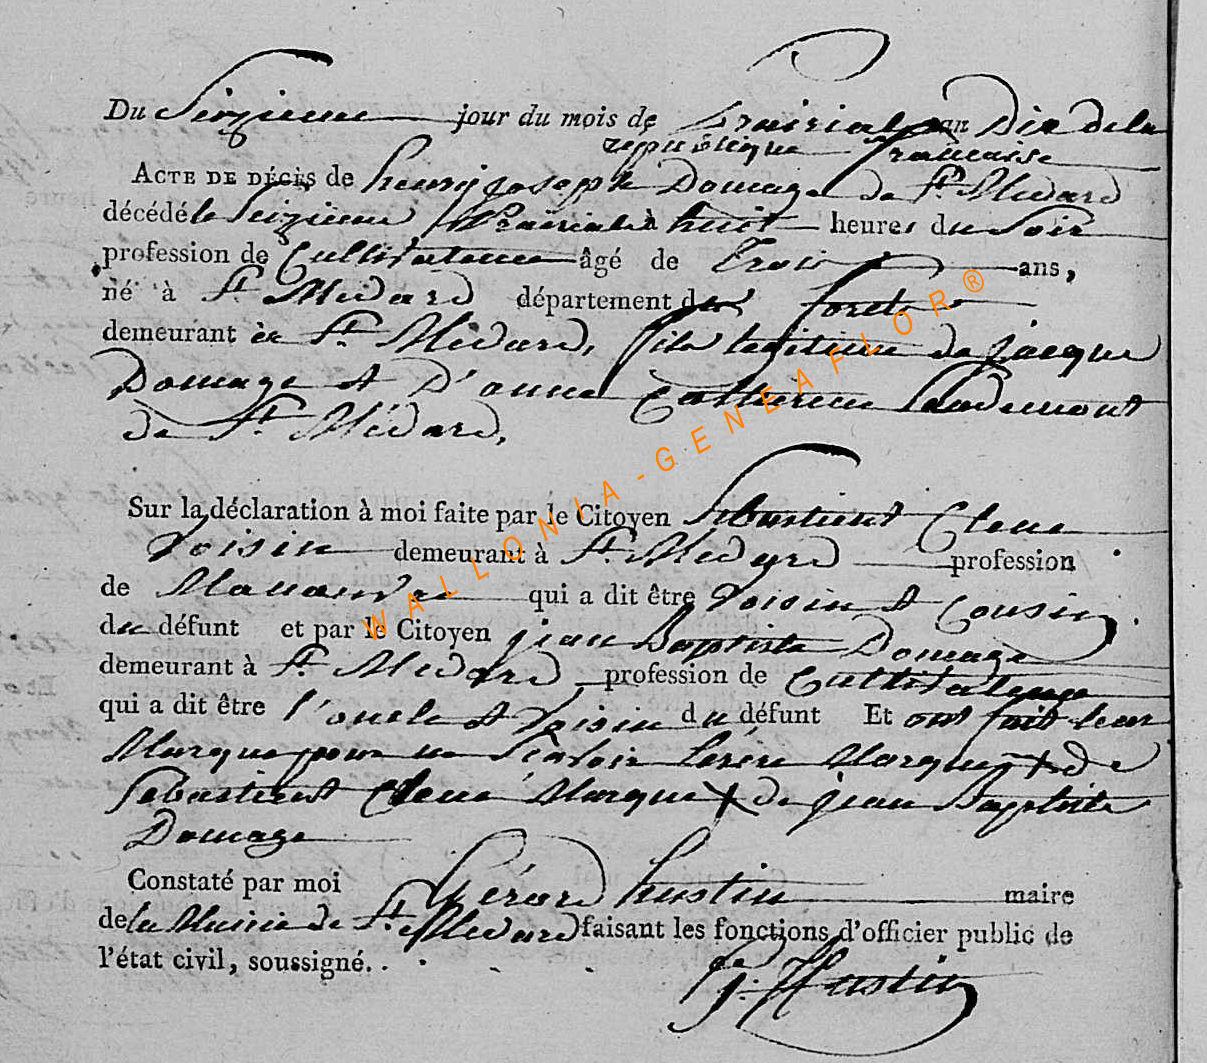 Du Seizieme jour du mois de Prairial an Dix de la
republique francaise
ACTE DE DÉCÈS de henry joseph Domage de St. Médard
décédé le Seizieme Prairial à huit heures du Soir
profession de Cultivateur âgé de Trois ans,
né à St. Médard département des forets
demeurant à St. Médard, fils legitime de jacque
Domage et D'anne Catherine
de St. Médard,
Sur la déclaration à moi faite par le Citoyen Sebastient
Voisin demeurant à St. Médard profession
de Manouvre qui a dit être Voisin et Cousin
du défunt et par le Citoyen jean Baptiste Domage
demeurant à St. Médard profession de Cultivateur
qui a dit être l'oncle et Voisin du défunt Et ont fait leur
Marque pour ne Scavoir Marque + de
Sebastient Marque + de jean Baptiste
Domage
Constaté par moi Gérard hustin maire
de la Mairie de St. Médard faisant les fonctions d'officier public de
l'état civil, soussigné.
g: Hustin
WALLONIA-GENEAFLOR®